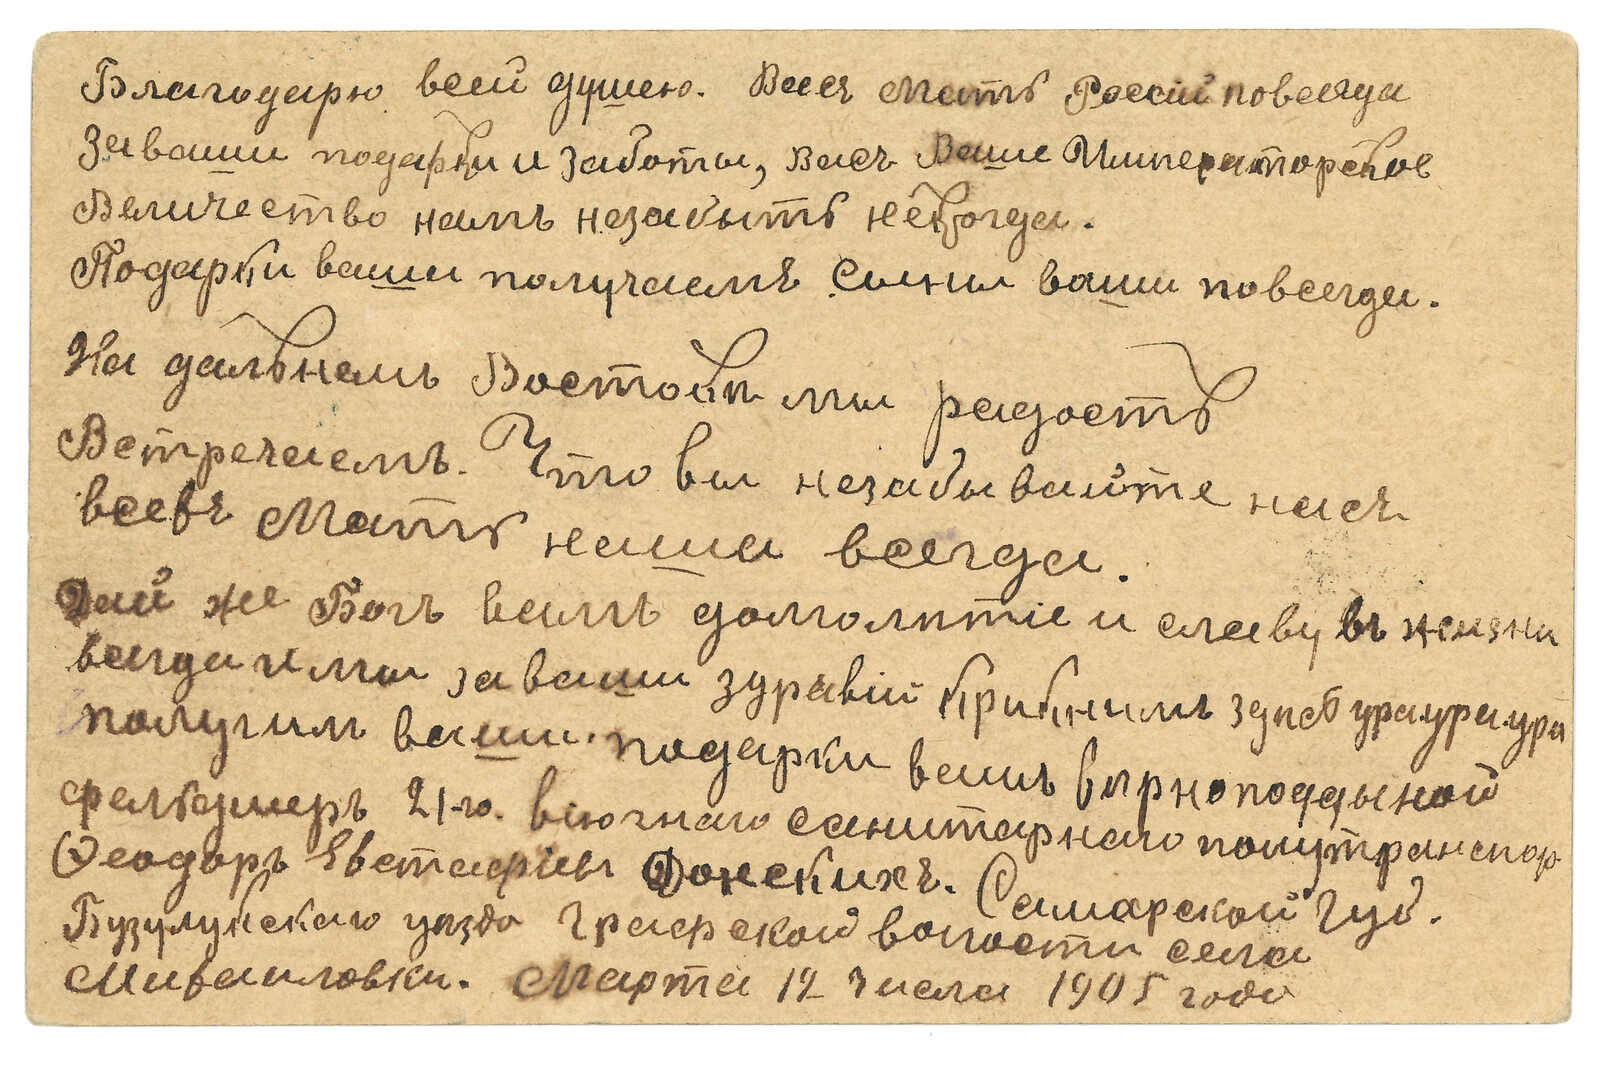 Благодарю всей душею. Васъ Мать Россіи повсегда
За ваши подарки и заботы, Васъ Ваше Императорское
Величество намъ незабыть некогда.
Подарки ваши получаемъ Сыны ваши повсегда.
На дальнемъ Востоки мы радость
Встречаемъ. Что вы незабывайте насъ
всехъ Мать наша всегда.
Дай же Богъ вамъ долголѣтіе и славу въ жизни
всегда и мы за ваши здравій крикнимъ здѣсь ура ура ура
получим ваши подарки вашъ вѣрноподданой
фельдшеръ 21-го. вьючнаго санитарнаго полутранспор
Ѳеодоръ Евстафіев Донскихъ. Самарской Губ.
Бузулукскаго уѣзда Графской волости села
Михаиловки. Марта 12 числа 1905 года